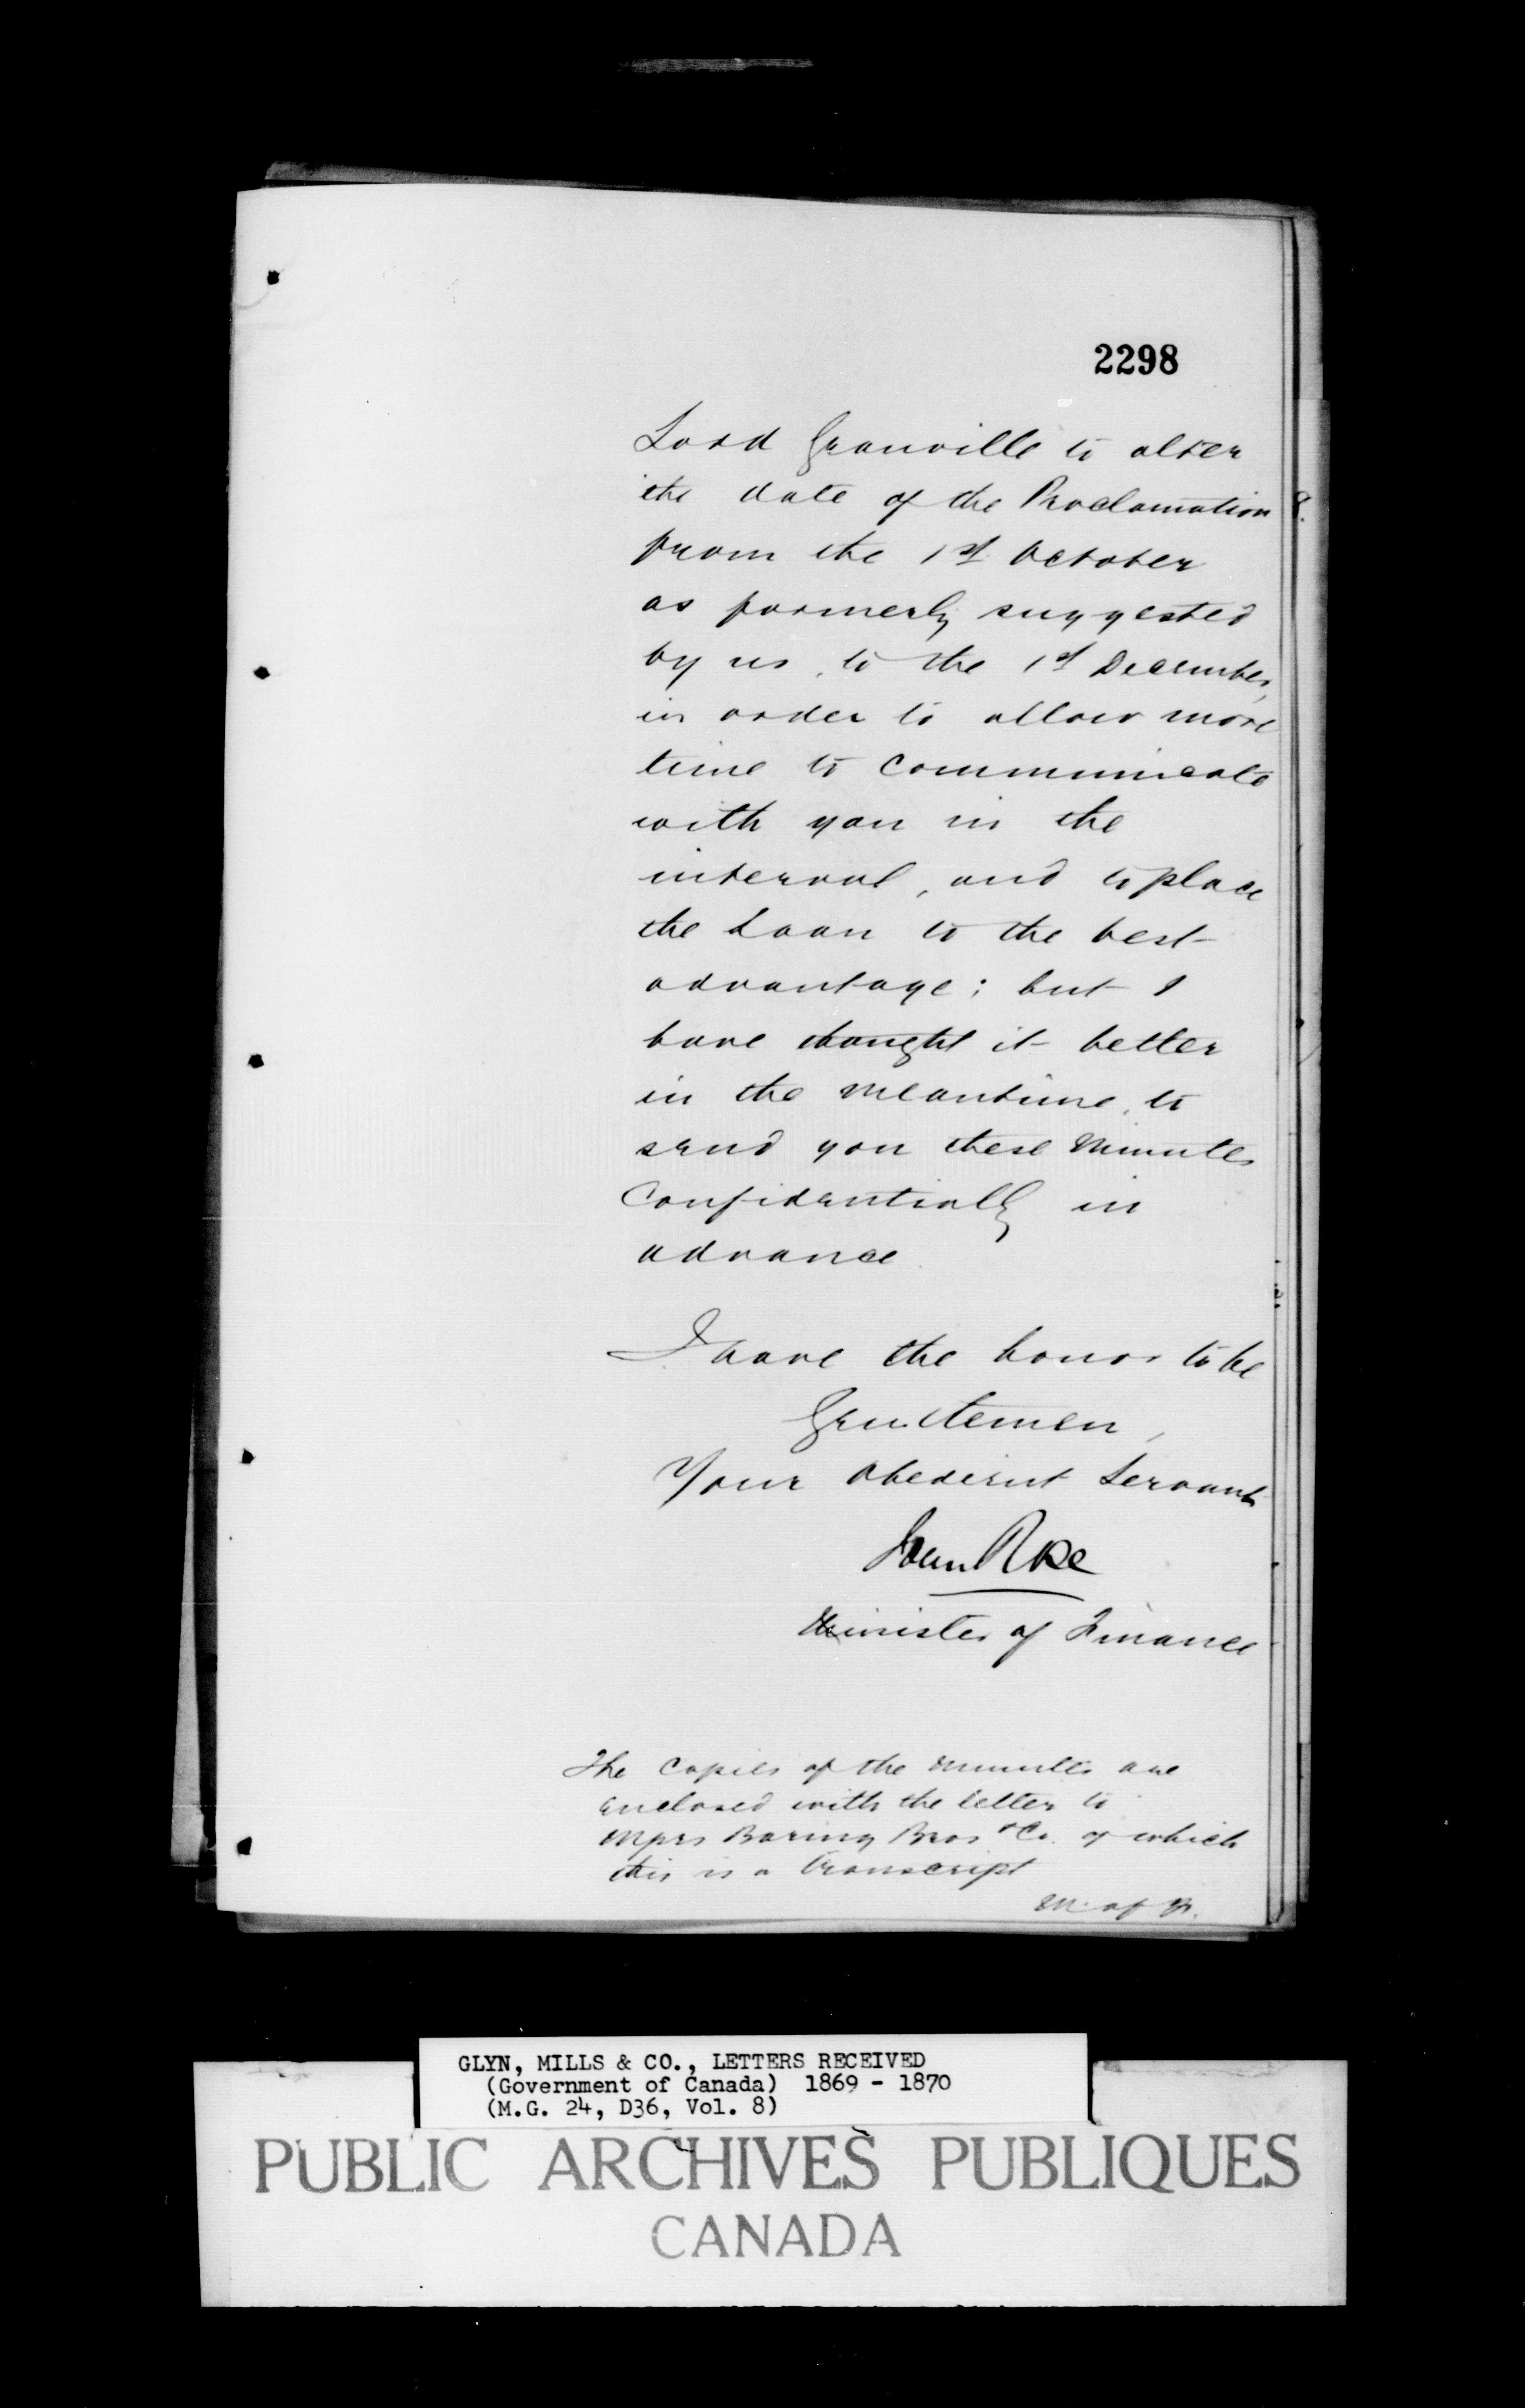 2298
Lord Granville to alter
the date of the Proclamation
from the 1st October
as formerly suggested
by us, to the 1st December,
in order to allow more
time to communicate
with you in the
interval, and to place
the Loan to the best
advantage; but I
have thought it better
in the meantime, to
send you these Minutes
Confidentially in
advance.
I have the honor to be
Gentlemen,
Your obedient Servant
John Rose
Minister of Finance
The Copies of the minutes are
enclosed with the letter to
Messrs Baring Bros & Co. of which
this is a transcript
M. of F.
GLYN, MILLS & CO., LETTERS RECEIVED
(Government of Canada) 1869 - 1870
(M.G. 24, D36, Vol. 8)
PUBLIC ARCHIVES PUBLIQUES
CANADA